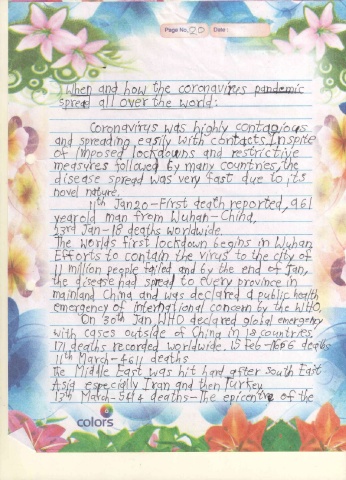 Page No. 20 Date:
When and how the coronavirus pandemic
spread all over the world:
Coronavirus was highly contagious
and spreading easily with contacts. Inspite
of imposed lockdowns and restrictive
measures followed by many countries, the
disease spread was very fast due to its
novel nature.
11th Jan 20-First death reported, a 61
yearold man from Wuhan-China,
23rd Jan-18 deaths worldwide.
The worlds first lockdown begins in Wuhan
Efforts to contain the virus to the city of
11 million people failed and by the end of Jan,
the disease had spread to every province in
mainland China and was declared a public health
emergency of international concern by the WHO.
On 30th Jan, WHO declared global emergency
with cases outside of China in 18 countries
171 deaths recorded worldwide. 15 Feb-1666 deaths
11th March-4611 deaths
The Middle East was hit hard after South East
Asia especially Iran and then Turkey
13th March-5414 deaths-The epicentre of the
colors